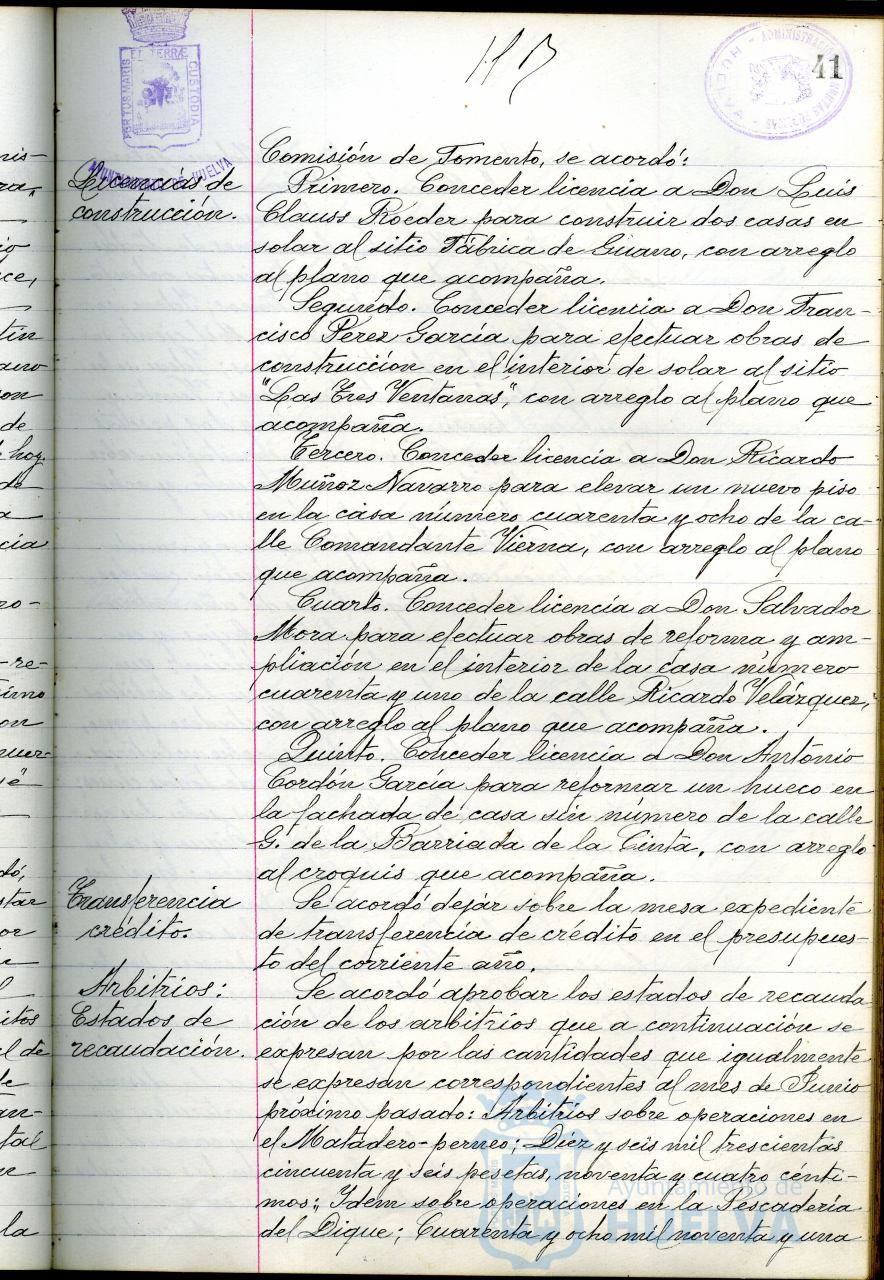 41
PORTUS MARIS ET TERRÆ CUSTODIA
AYUNTAMIENTO DE HUELVA
HUELVA
Licencias de
construcción.
Comisión de Fomento, se acordó:
Primero. Conceder licencia a Don Luis
Clauss Roeder para construir dos casas en
solar al sitio Fábrica de Guano, con arreglo
al plano que acompaña.
Segundo. Conceder licencia a Don Fran-
cisco Pérez García para efectuar obras de
construcción en el interior de solar al sitio
"Las Tres Ventanas", con arreglo al plano que
acompaña.
Tercero. Conceder licencia a Don Ricardo
Muñoz Navarro para elevar un nuevo piso
en la casa número cuarenta y ocho de la ca-
lle Comandante Vierna, con arreglo al plano
que acompaña.
Cuarto. Conceder licencia a Don Salvador
Mora para efectuar obras de reforma y am-
pliación en el interior de la casa número
cuarenta y uno de la calle Ricardo Velázquez,
con arreglo al plano que acompaña.
Quinto. Conceder licencia a Don Antonio
Cordón García para reformar un hueco en
la fachada de casa sin número de la calle
G. de la Barriada de la Cinta, con arreglo
al croquis que acompaña.
Transferencia
crédito.
Se acordó dejar sobre la mesa expediente
de transferencia de crédito en el presupues-
to del corriente año.
Arbitrios:
Estados de
recaudación.
Se acordó aprobar los estados de recauda
ción de los arbitrios que a continuación se
expresan por las cantidades que igualmente
se expresan correspondientes al mes de Junio
próximo pasado: Arbitrios sobre operaciones en
el Matadero-perneo; Diez y seis mil trescientas
cincuenta y seis pesetas, noventa y cuatro cénti-
mos; Idem sobre operaciones en la Pescadería
del Dique; Cuarenta y ocho mil noventa y una
Ayuntamiento de
HUELVA